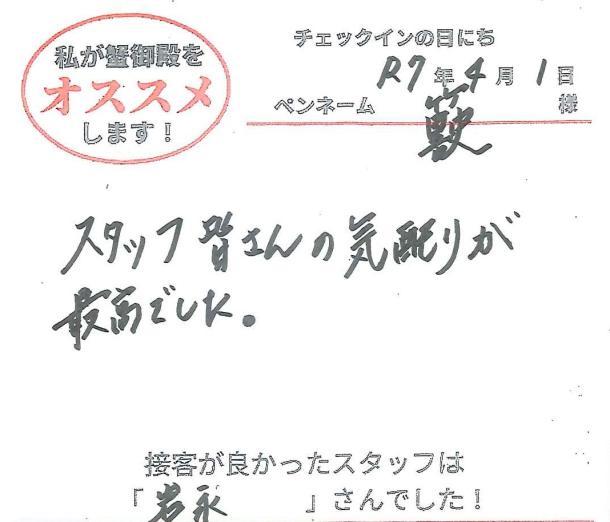 私が蟹御殿を
オススメ
します！
チェックインの日にち
R7年4月1日
ペンネーム 様
スタッフ皆さんの気配りが
最高でした。
接客が良かったスタッフは
「岩永」さんでした！